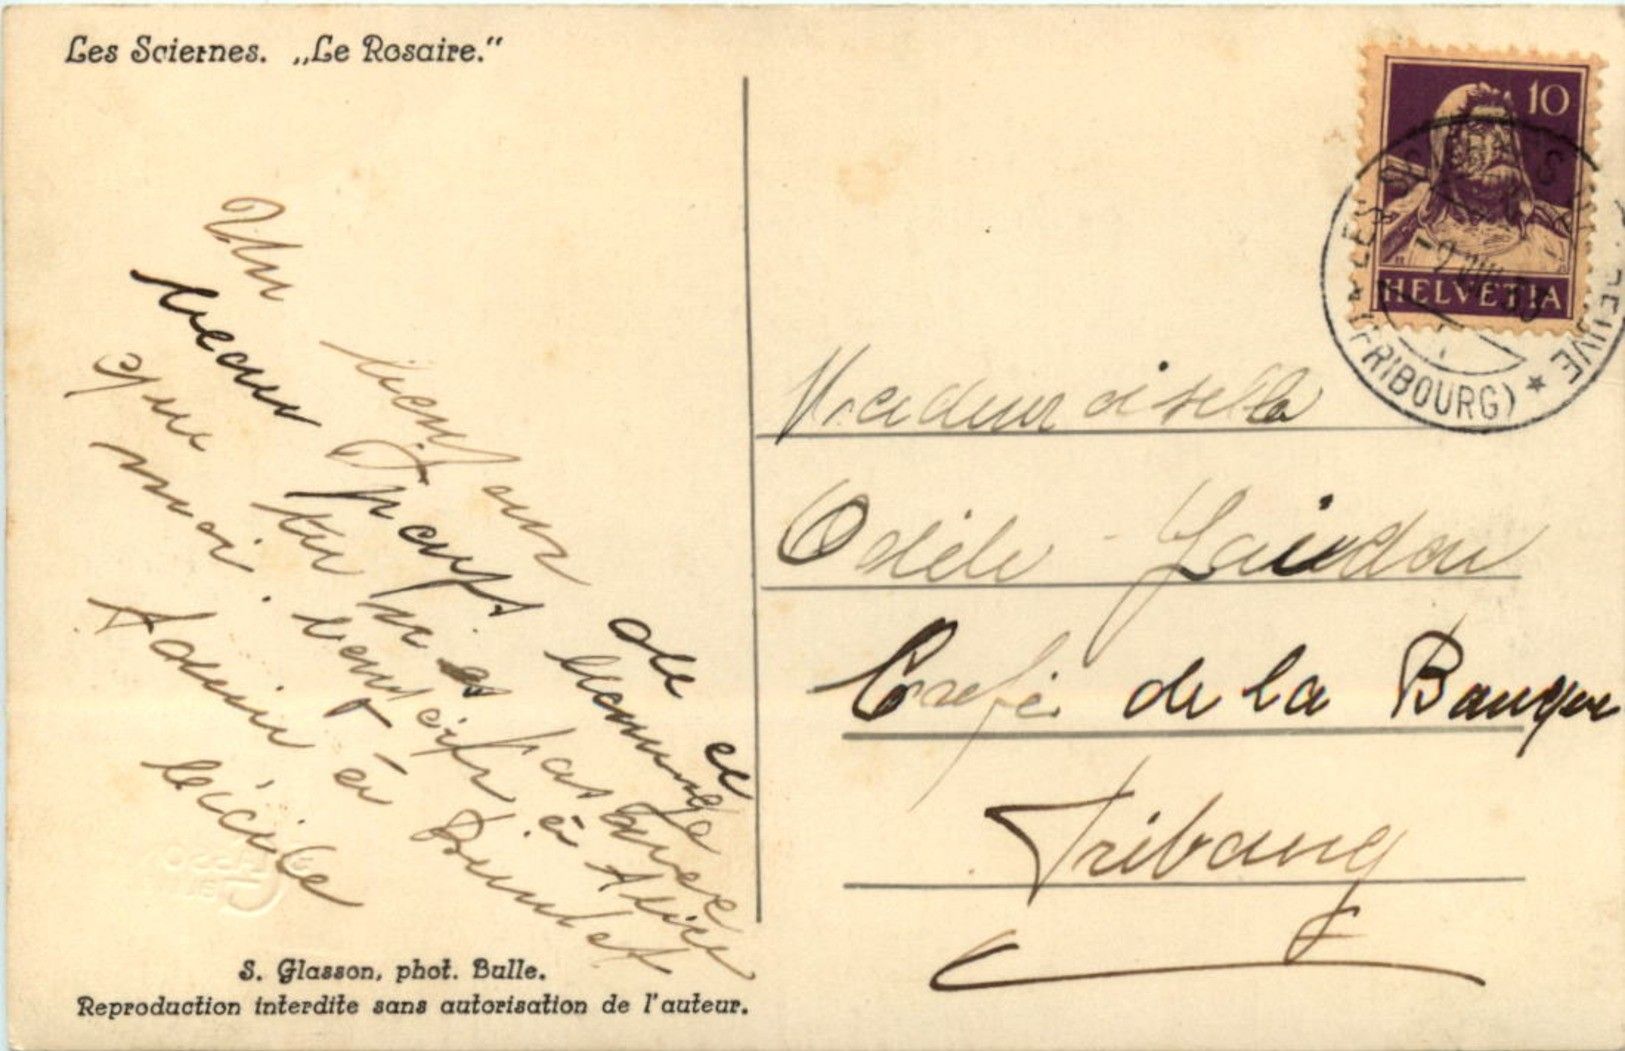 Les Sciernes. „Le Rosaire."
Un bonjour de ce
beau pays dommage
que tu n'es pas avec
moi. bonjour à Alice
Adieu à Bientôt
Cécile
S. Glasson, phot. Bulle.
Reproduction interdite sans autorisation de l'auteur.
10
HELVETIA
(FRIBOURG) *
Mademoiselle
Odile
Café de la Banque
Fribourg